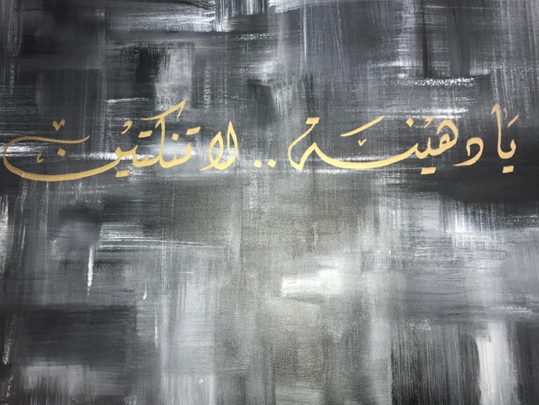 يا دهينة .. لا تنكتين